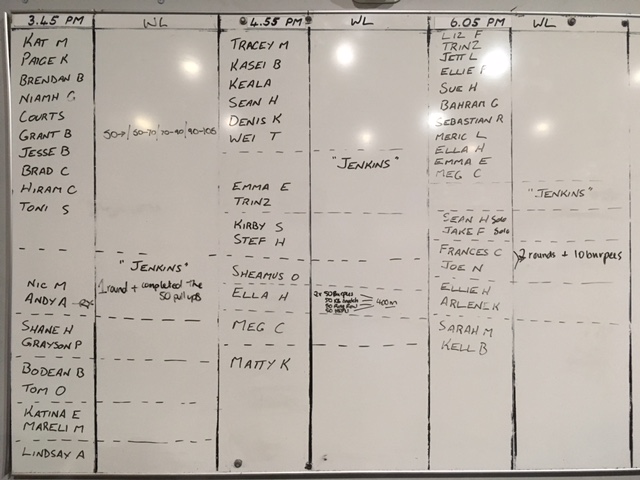 3.45 PM
WL
KAT M
PAIGE K
BRENDAN B
NIAMH G
COURTS
GRANT B
JESSE B
BRAD C
HIRAM C
TONI S
50-70/70-90/90-105
"JENKINS"
NIC M
ANDY A
1 round + completed the
50 pull ups
SHANE H
GRAYSON P
BODEAN B
TOM O
KATINA E
MARELI M
LINDSAY A
4.55 PM
WL
TRACEY M
KASEI B
KEALA
SEAN H
DENIS K
WEI T
"JENKINS"
EMMA E
TRINZ
KIRBY S
STEF H
SHEAMUS O
ELLA H
2x 50 Burpees
50
50
50
400m
MEG C
MATTY K
6.05 PM
WL
LIZ F
TRINZ
JETT L
ELLIE
SUE H
BAHRAM G
SEBASTIAN R
MERIC L
ELLA H
EMMA E
MEG C
"JENKINS"
SEAN H Solo
JAKE F Solo
FRANCES C
JOE N
2 rounds + 10 burpees
ELLIE H
ARLENE K
SARAH M
KELL B